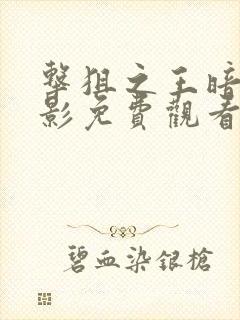 擊狙之王暗
影免費觀看
碧血染銀槍